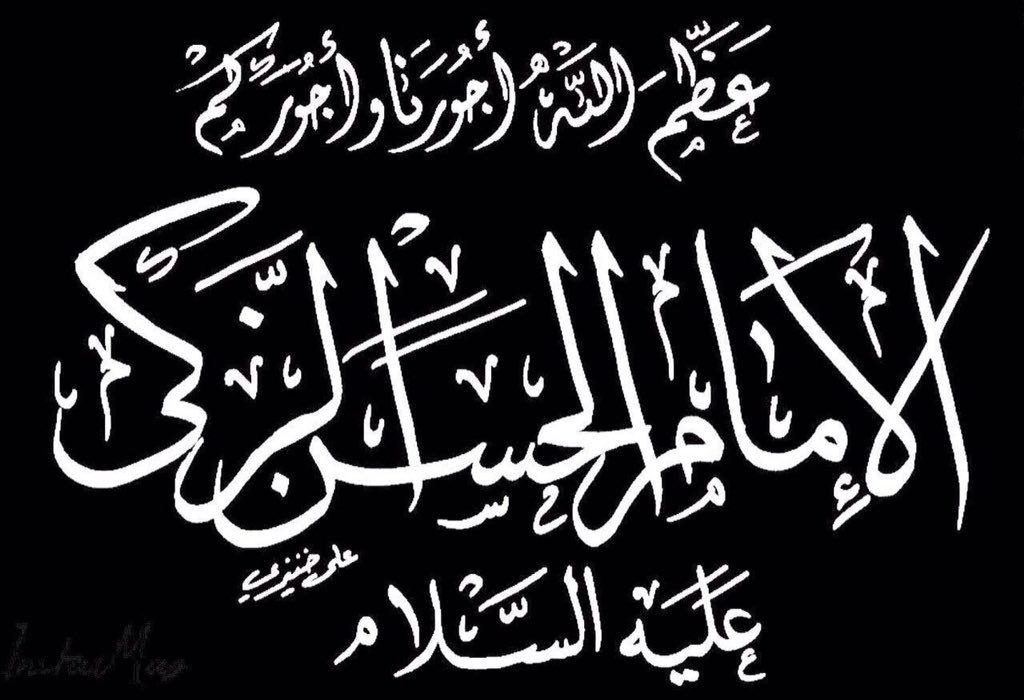 عَظَّمَ اللَّهُ أُجُورَنَا وَأُجُورَكُمْ
الإمام الحسن الزكي
علي خنيزي
عَلَيْهِ السَّلام